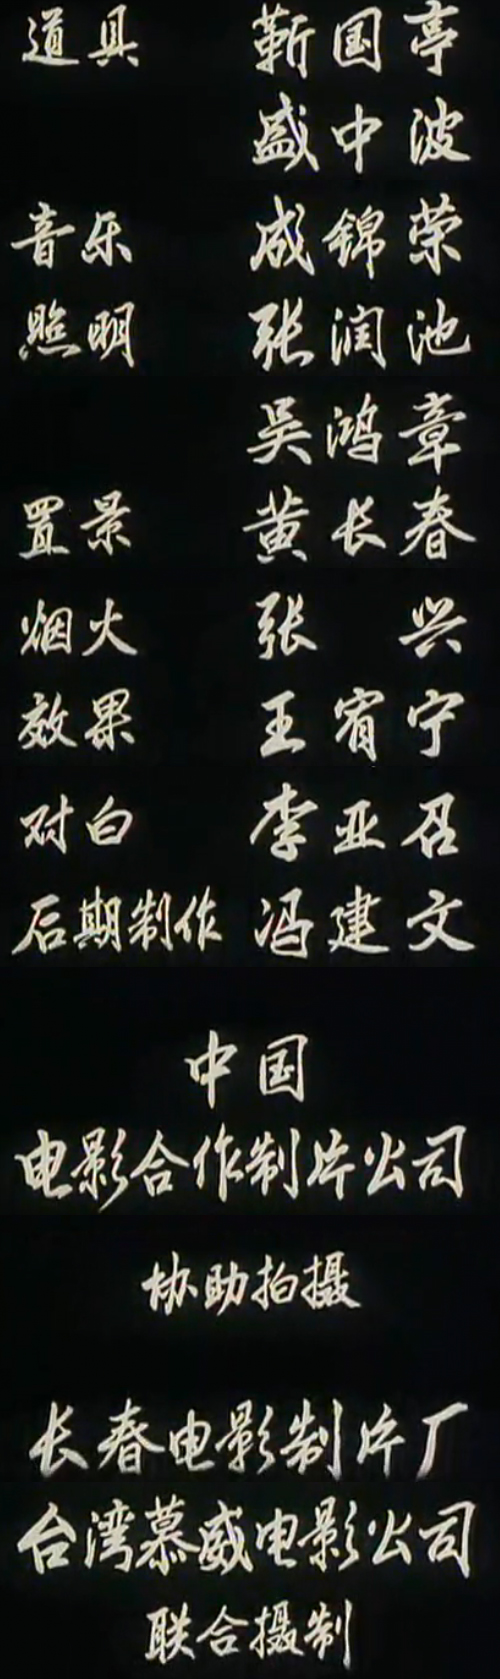 道具 靳国亭
盛中波
音乐 成锦荣
照明 张润池
吴鸿章
置景 黄长春
烟火 张兴
效果 王宥宁
对白 李亚召
后期制作 冯建文
中国
电影合作制片公司
协助拍摄
长春电影制片厂
台湾慕威电影公司
联合摄制